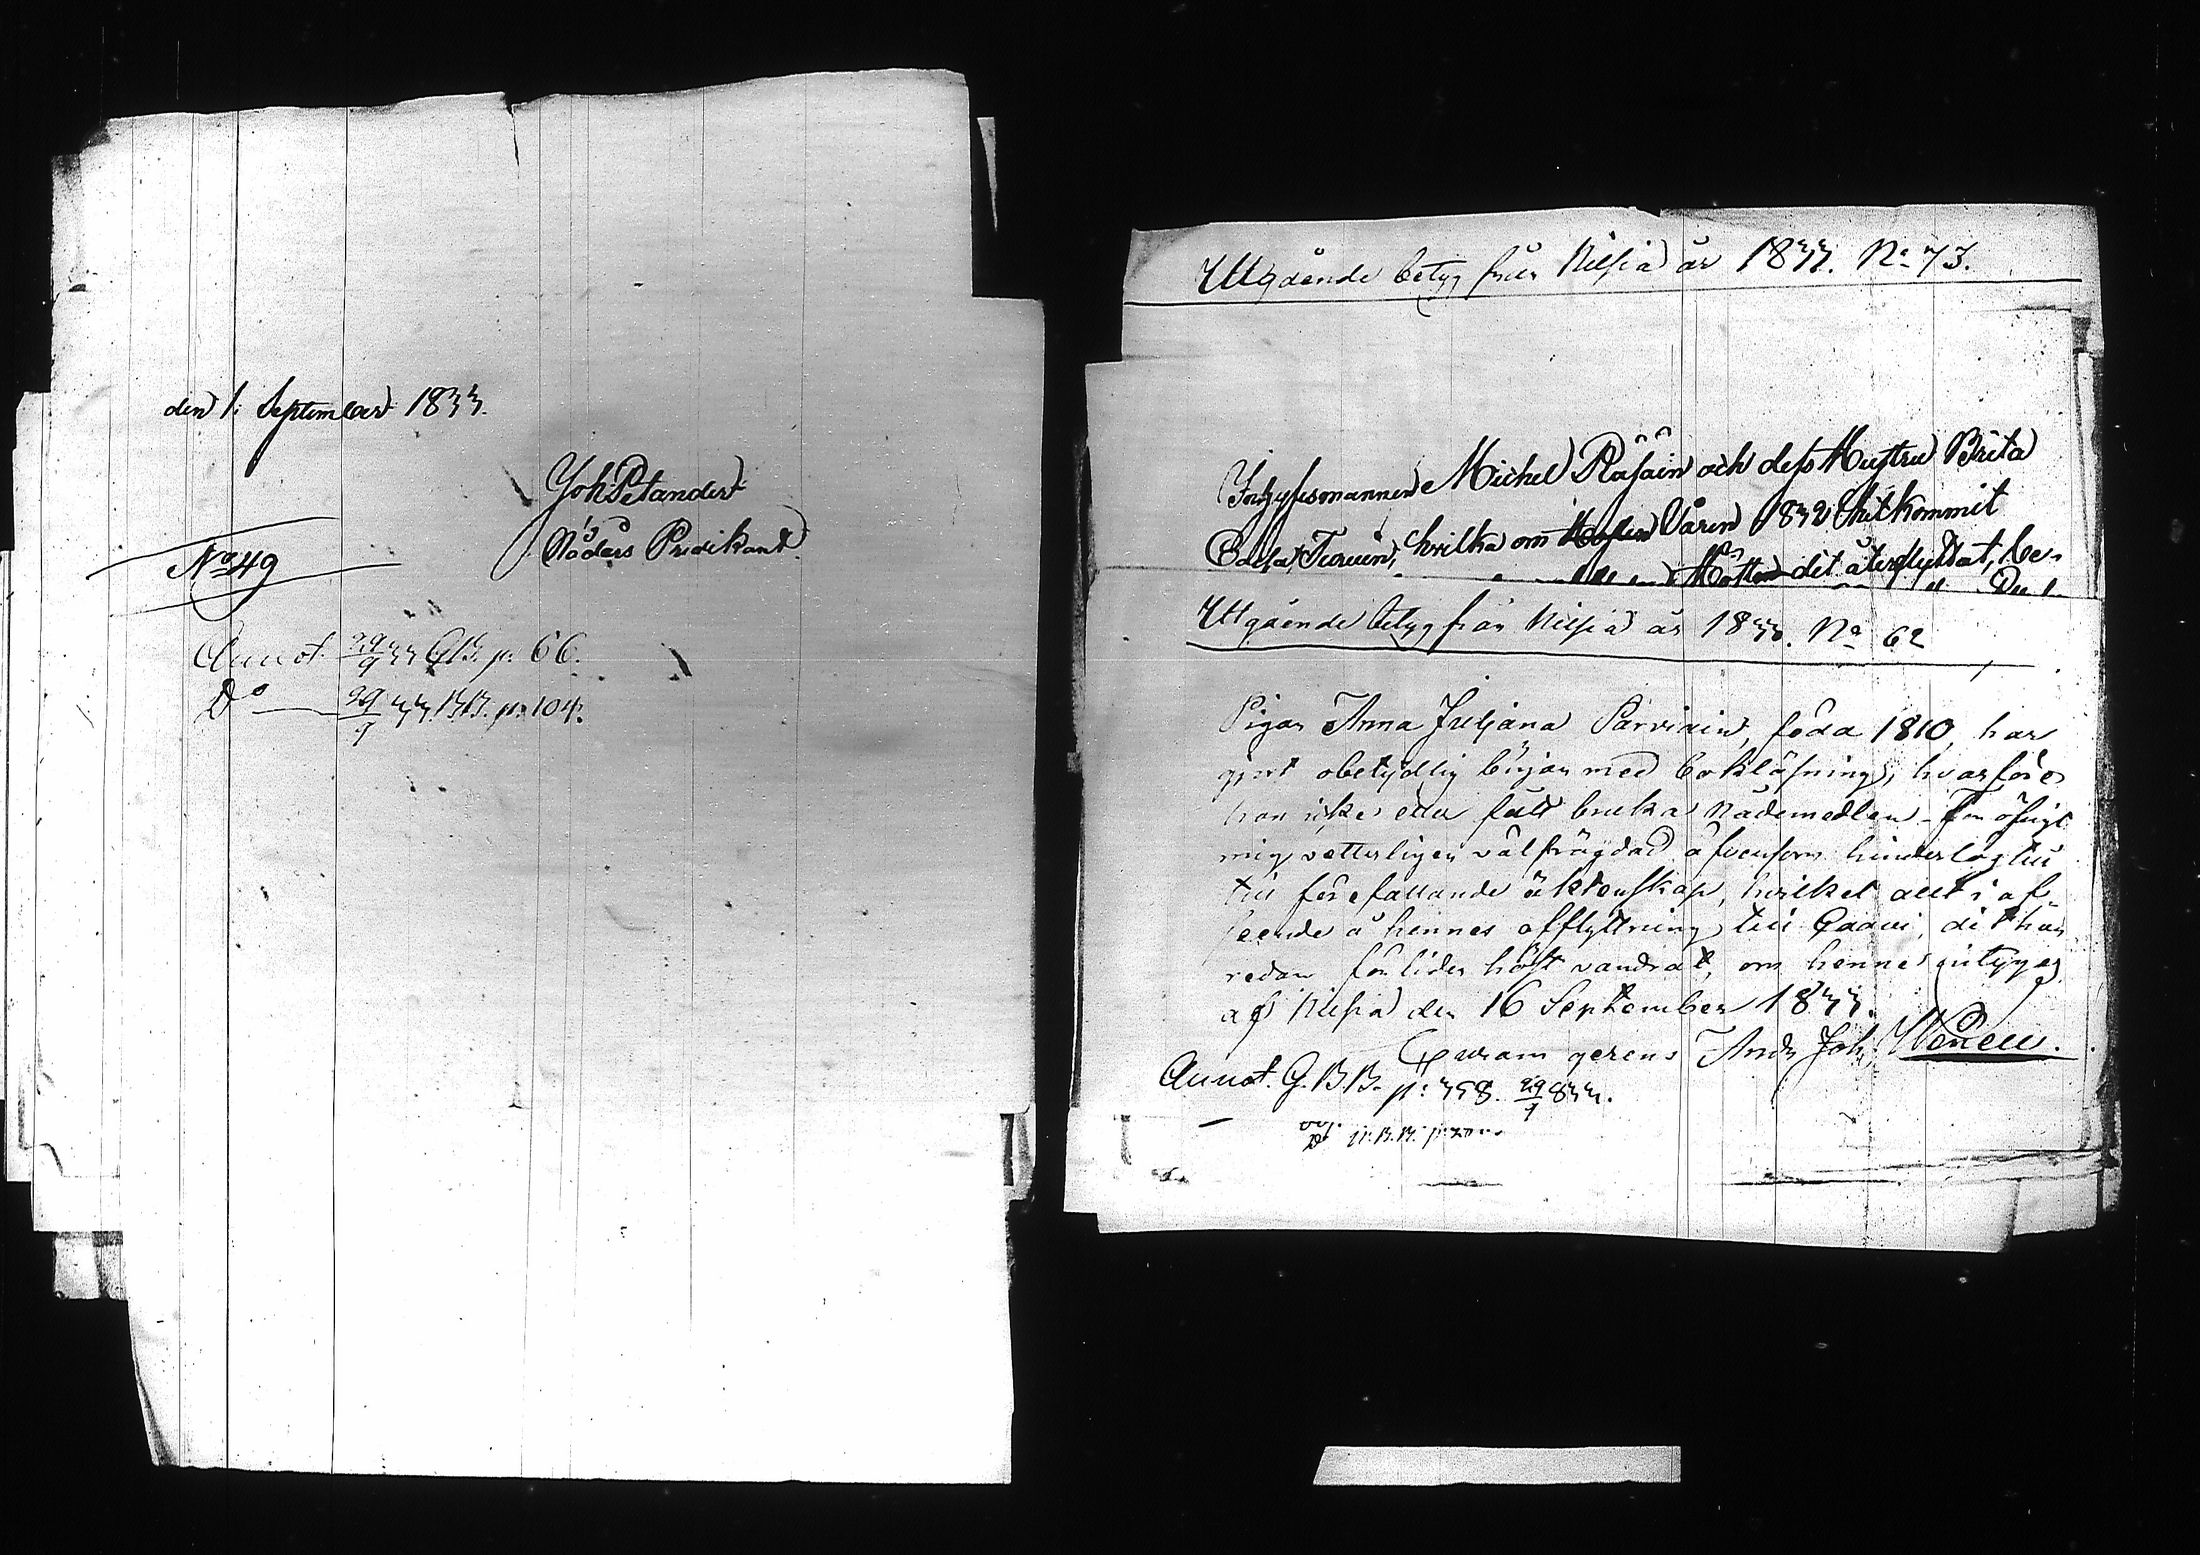 den 1. September 1833.
Joh Petander
Nåders Predikant.
No 49
Annot. 29/9 33 G.B. p. 66.
Do 29/9 33. B.B. p. 104.
Utgående betyg från Nilsiä år 1833. No 73.
Inhysesmannen Michel Räsäin och dess Hustru Brita
hvilka om Våren 1832 hitkommit
dit återflyttat, be-
Utgående betyg från Nilsiä år 1833. No 62
Pigan Anna Juljana Parviain, föda 1810, har
gjort obetydlig början med bokläsning, hvarföre
hon icke eller fått bruka nådemedlen. För öfrigt
mig vetterligen välfrägdad äfvensom hinderlös till
till förefallande äktenskap, hvilket allt i af-
seende å hennes afflyttning till Gaavi, dit hon
redan förliden höst vandrat, om henne intygas
af Nilsiä den 16 September 1833.
Curam gerens And. Joh.
Annot. G.B.B. p: 358. 29/9 833.